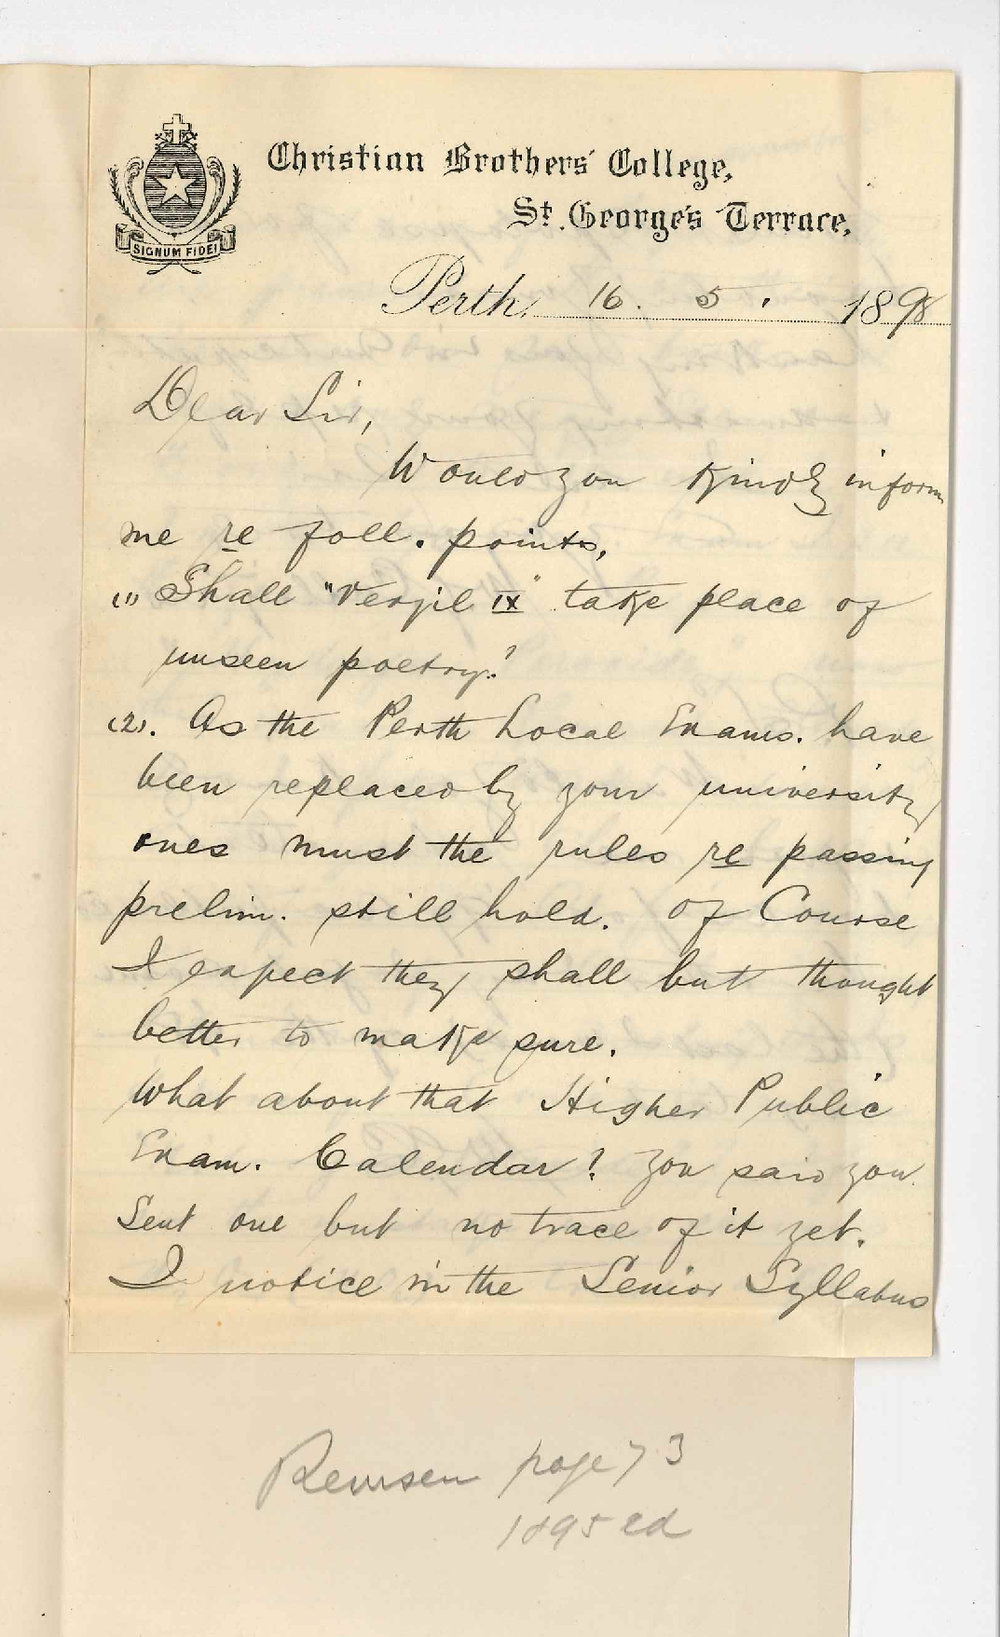 Christian Brothers' College,
St. George's Terrace,
SIGNUM FIDEI
Perth, 16. 5. 1898
Dear Sir,
Would you kindly inform
me re foll. points,
(1) Shall "Vergil IX" take place of
unseen poetry?
(2). As the Perth Local Exams. have
been replaced by your university
ones must the rules re passing
prelim. still hold. Of Course
I expect they shall but thought
better to make sure.
What about that Higher Public
Exam. Calendar? You said you
sent one but no trace of it yet.
I notice in the Senior Syllabus
Remsen page 73
1895 ed